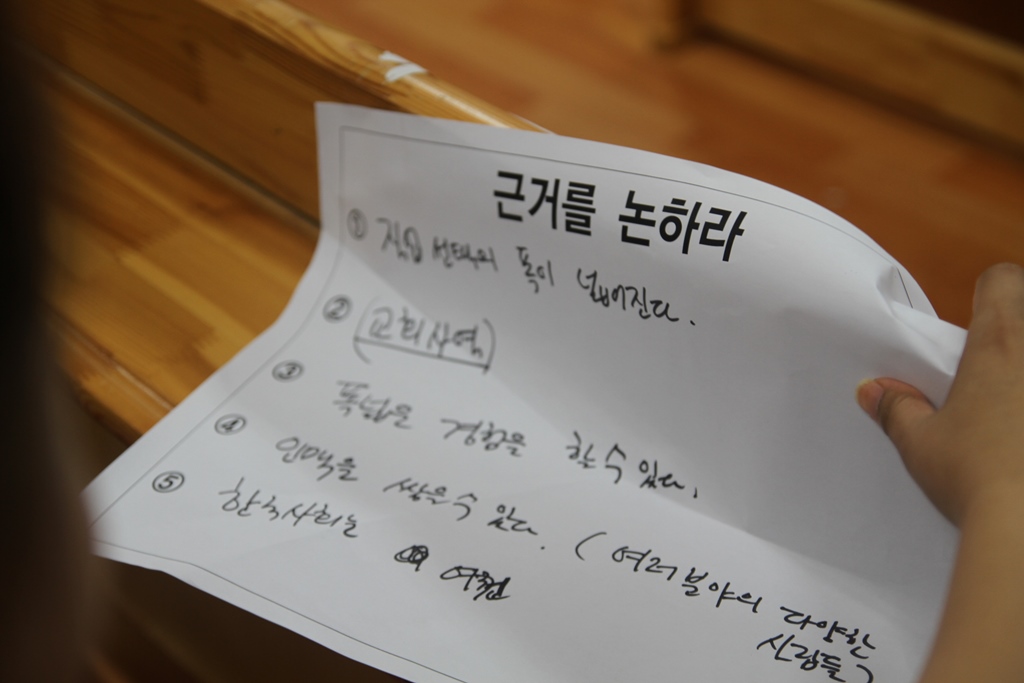 근거를 논하라
① 직업 선택의 폭이 넓어진다.
② (교회사역)
③ 폭넓은 경험을 할 수 있다.
④ 인맥을 쌓을 수 있다. (여러분야의 다양한
사람들)
⑤ 한국사회는 여전